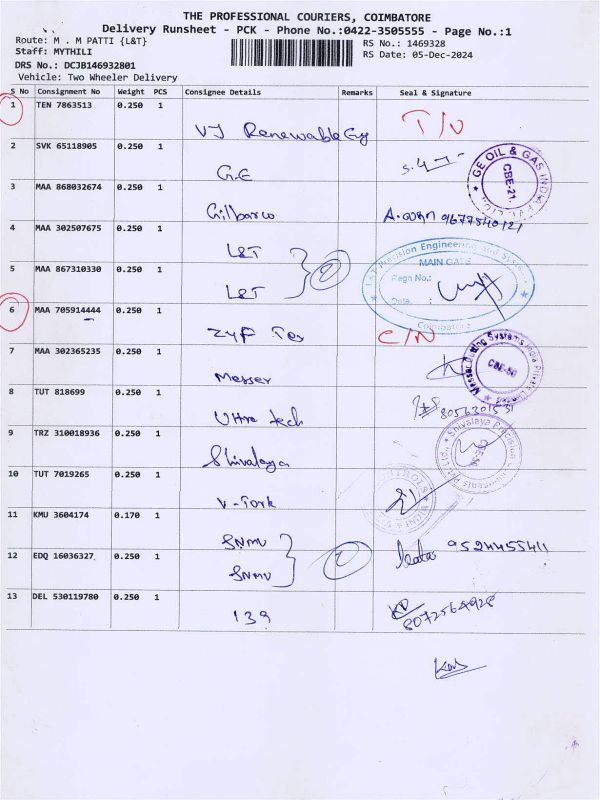 THE PROFESSIONAL COURIERS, COIMBATORE
Delivery Runsheet - PCK - Phone No.:0422-3505555 - Page No.:1
Route: M . M PATTI {L&T}
RS No.: 1469328
Staff: MYTHILI
RS Date: 05-Dec-2024
DRS No.: DCJB146932801
Vehicle: Two Wheeler Delivery
S No Consignment No Weight PCS Consignee Details Remarks Seal & Signature
1 TEN 7863513 0.250 1
VJ Renewable T/U
2 SVK 65118905 0.250 1
G.E
GE OIL & GAS INDIA
CBE-21
3 MAA 868032674 0.250 1
Gilbarco
4 MAA 302507675 0.250 1
L&T
L&T Precision Engineering and Systems
MAIN GATE
Regn No.:
Date :
Coimbatore
5 MAA 867310330 0.250 1
L&T 2
6 MAA 705914444 0.250 1
C/N
7 MAA 302365235 0.250 1
Messer
Messer Cutting Systems India Private Limited
CBE-50
8 TUT 818699 0.250 1
tech 8056301531
9 TRZ 310018936 0.250 1
Shivalaya
Shivalaya Precision Components Pvt Ltd.,
10 TUT 7019265 0.250 1
V-Tork
11 KMU 3604174 0.170 1
SNMV
9524455411
12 EDQ 16036327 0.250 1
SNMV 2
13 DEL 530119780 0.250 1
139
8072564928